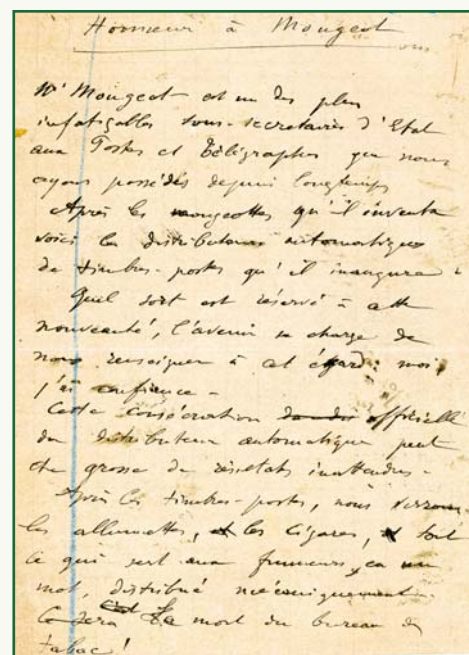 Honneur à Mougeot
Mr Mougeot est un des plus
infatigables sous-secretaires d'Etat
aux Postes et Télégraphes que nous
ayons possédés depuis longtemps
Après les mougeottes qu'il inventa
voici les distributeurs automatiques
de timbres-postes qu'il inaugure.
Quel sort est réservé à cette
nouveauté, l'avenir se charge de
nous renseigner à cet égard: moi
j'ai confiance -
Cette consécration officielle
du distributeur automatique peut
être grosse de résultats inattendus -
Après les timbres-postes, nous verrons
les allumettes, les cigares, tout
ce qui sert aux fumeurs, en un
mot, distribué mécaniquement -
Ce sera la mort du bureau de
tabac!